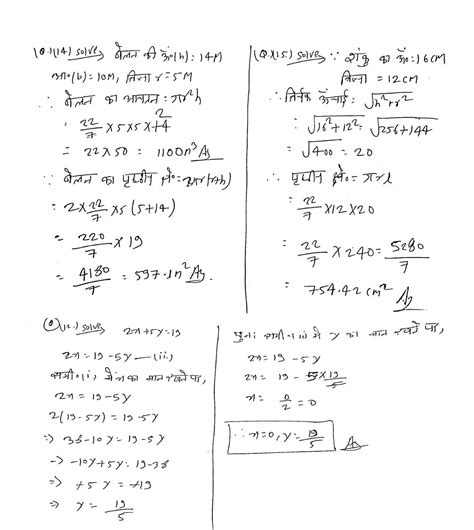 (Q.1(14) solve) बेलन की ऊँ०(h) : 14M
आ०(b) = 10M, त्रिज्या r = 5M
∴ बेलन का आयतन : πr²h
: 22/7 × 5 × 5 × 14 2
= 22 × 50 = 1100m³ Ans
∵ बेलन का पृष्ठीय क्षे० = 2πr(r+h)
: 2 × 22/7 × 5 (5+14)
= 220/7 × 19
= 4180/7 = 597.1m² Ans
(Q.1(15) solve) ∵ शंकु का ऊँ० : 16 CM
त्रिज्या = 12 CM
∴ तिर्यक ऊँचाई : √h²+r²
= √16²+12² = √256+144
= √400 = 20
∴ पृष्ठीय क्षे० = πrl
: 22/7 × 12 × 20
= 22/7 × 240 = 5280/7
= 754.42 cm² Ans
solve) 2x+5y=19
2x = 19 - 5y —(ii)
समी०(i) में x का मान रखने पर,
2x = 19 - 5y
2(19-5x) = 19-5y
=> 38-10y = 19-5y
-> -10y+5y = 19-38
=> +5y = +19
=> y = 19/5
पुनः समी०(ii) में y का मान रखने पर,
2x = 19 - 5y
2x = 19 - 5×19/5
x = 0/2 = 0
∴ x=0, y = 19/5 Ans